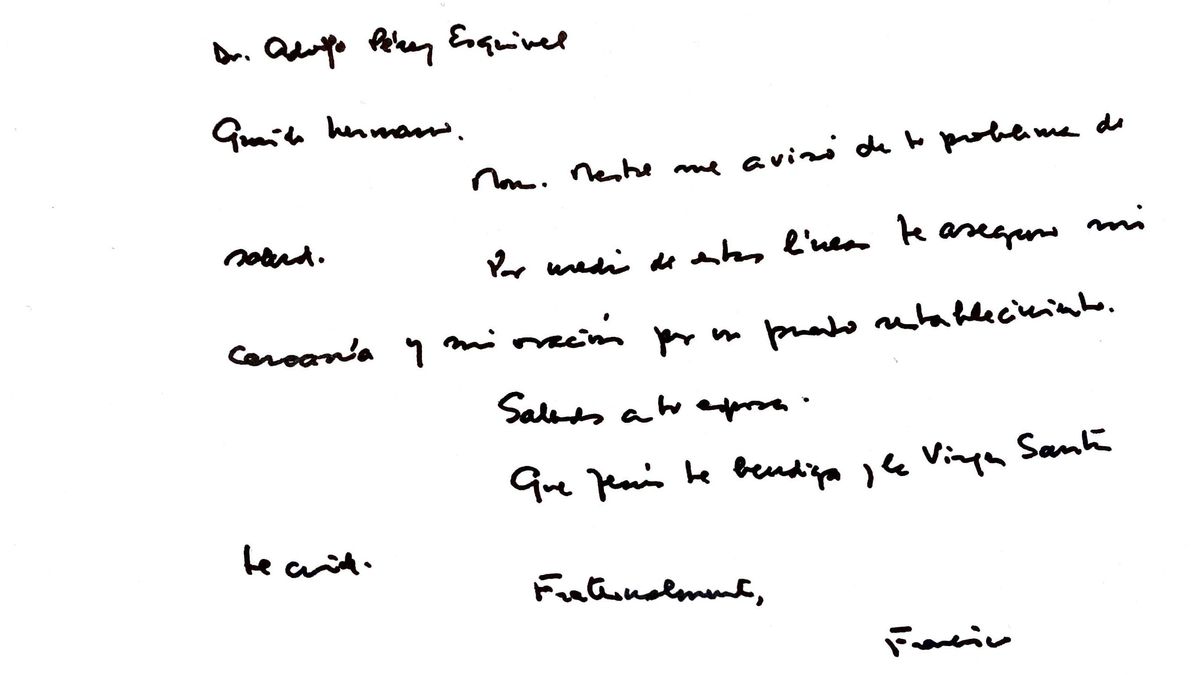 Dr. Adolfo Pérez Esquivel
Querido hermano.
Mons. Mestre me avisó de tu problema de
salud. Por medio de estas líneas te aseguro mi
cercanía y mi oración por un pronto restablecimiento.
Saludos a tu esposa.
Que Jesús te bendiga y la Virgen Santa
te cuide.
Fraternalmente,
Francisco